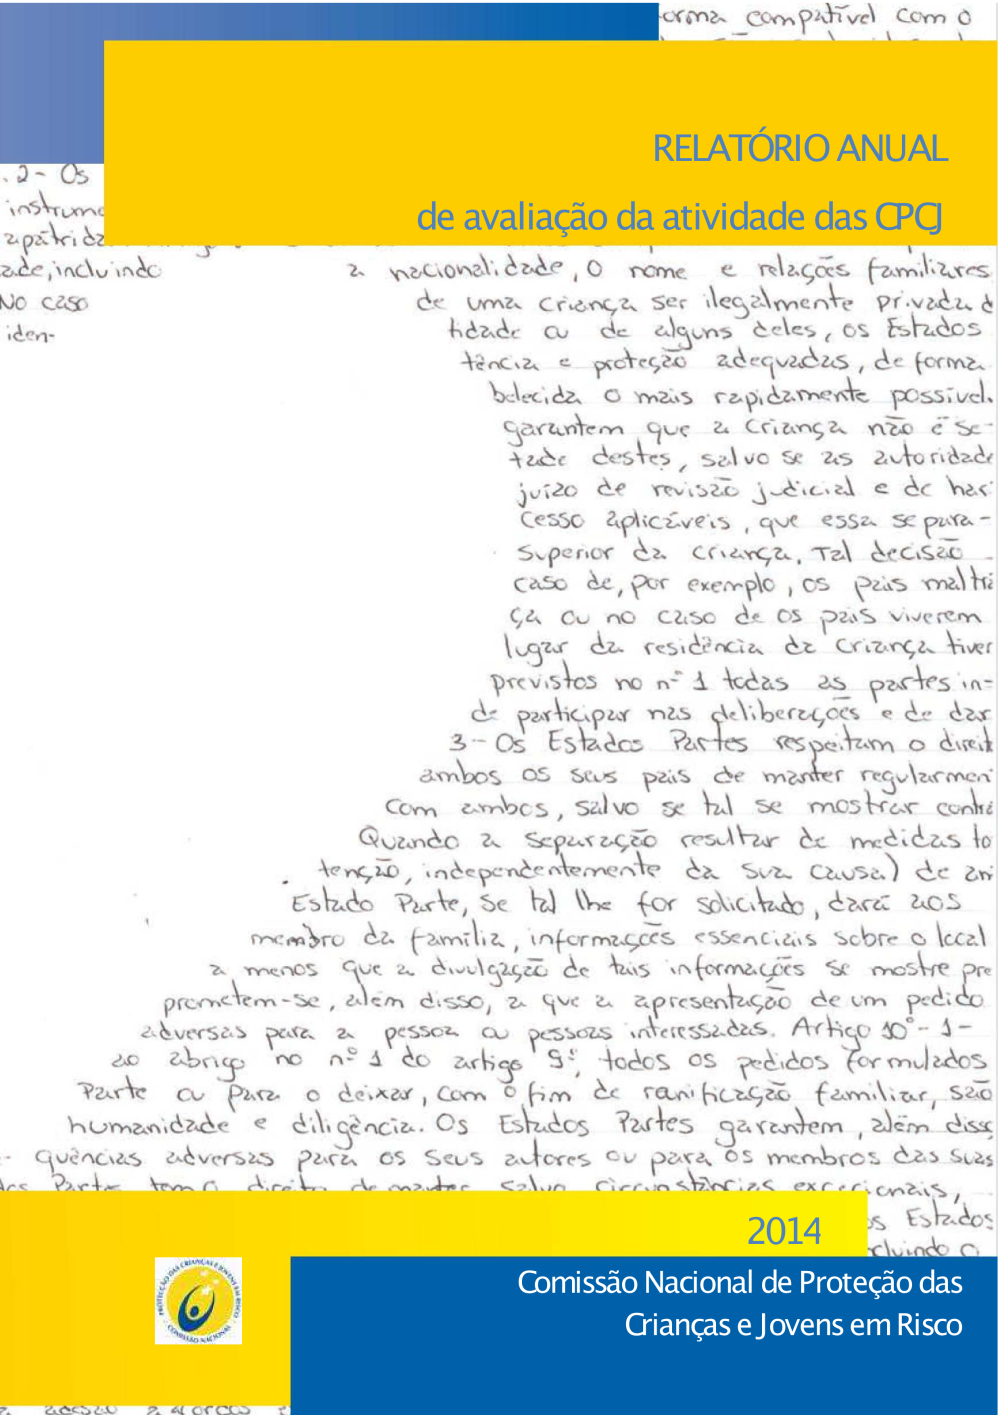 orma compatível com o
RELATÓRIO ANUAL
de avaliação da atividade das CPCJ
. 2 - Os
instrume
apátrida
ade, incluindo a nacionalidade, o nome e relações familiares
No caso de uma criança ser ilegalmente privada d
iden- tidade ou de alguns deles, os Estados
tência e proteção adequadas, de forma
belecida o mais rapidamente possível.
garantem que a criança não é se-
tade destes, salvo se as autoridade
juízo de revisão judicial e de har
cesso aplicáveis, que essa separa-
superior da criança. Tal decisão
caso de, por exemplo, os pais maltra
ça ou no caso de os pais viverem
lugar da residência da criança tiver
previstos no nº 1 todas as partes in-
de participar nas deliberações e de dar
3 - Os Estados Partes respeitam o direit
ambos os seus pais de manter regularmen
com ambos, salvo se tal se mostrar contrá
Quando a separação resultar de medidas to
tenção, independentemente da sua causa) de
Estado Parte, se tal lhe for solicitado, dará aos
membro da família, informações essenciais sobre o local
a menos que a divulgação de tais informações se mostre pre
prometem-se, além disso, a que a apresentação de um pedido
adversas para a pessoa ou pessoas interessadas. Artigo 10º - 1 -
ao abrigo no nº 1 do artigo 9º, todos os pedidos formulados
Parte ou para o deixar, com o fim de reunificação familiar, são
humanidade e diligência. Os Estados Partes garantem, além diss
- quências adversas para os seus autores ou para os membros das suas
dos Partes tem o direito de manter salvo circunstâncias excecionais,
os Estados
cluindo o
2014
PROTECÇÃO DAS CRIANÇAS E JOVENS EM RISCO
COMISSÃO NACIONAL
Comissão Nacional de Proteção das
Crianças e Jovens em Risco